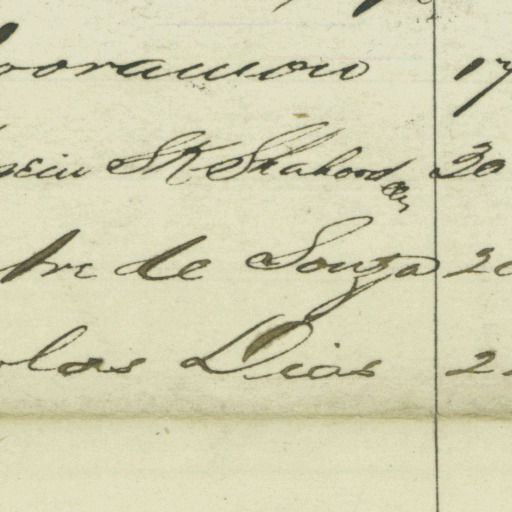 ooramow 17
sein SK Shahood 30
bre de Souza 20
olas Dias 2